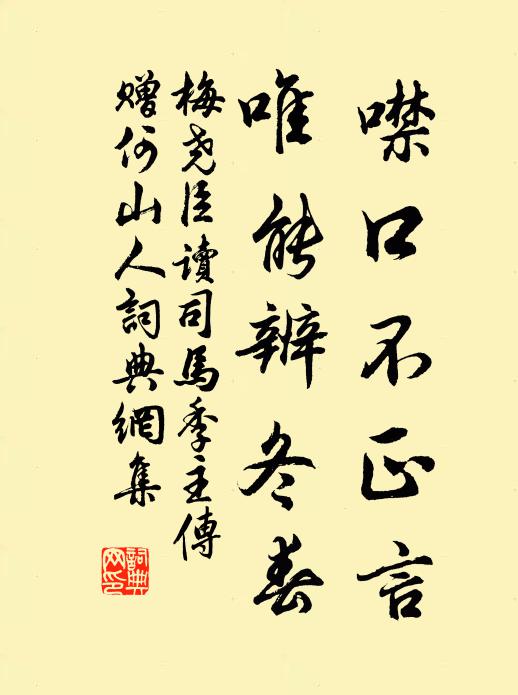 噤口不正言
唯能辨冬春
梅尧臣讀司馬季主傳
赠何山人詞典網集
詞典网印